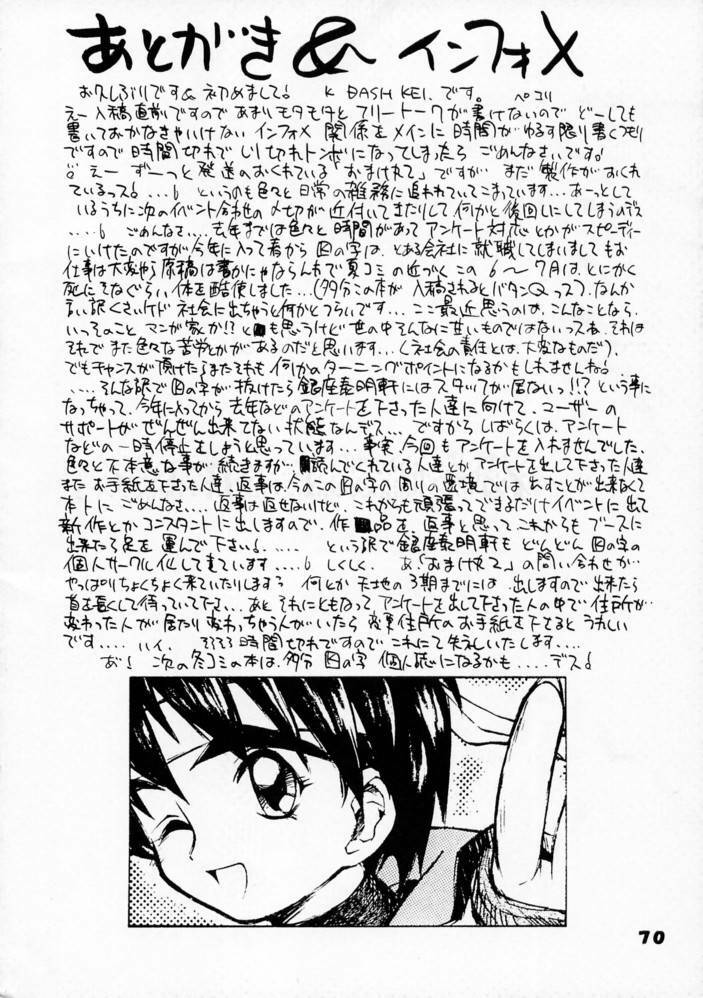 あとがき & インフォメ
お久しぶりです&初めまして! K DASH KEI.です。 ペコリ
えー入稿直前ですのであまりモタモタとフリートークが書けないのでどーしても
書いておかなきゃいけない インフォメ 関係をメインに時間がゆるす限り書くつもり
ですので時間切れでしり切れトンボになってしまったら ごめんなさいです!
えーずーっと発送のおくれている「おまけ丸て」ですが… まだ製作がおくれ
ているっス!…. というのも色々と日常の雑務に追われていてこまっています…あーっとして
いるうちに次のイベント合わせの〆切が近付いてきたりして何かと後回しにしてしまうのデス
…. ごめんなさい…去年までは色々と時間があってアンケート対応とかがスピーディー
にいけたのですが今年に入って春から 図の字は、とある会社に就職してしまいましてもお
仕事は大変やら原稿は書かにゃならんわで夏コミの近づくこの6〜7月は、とにかく
死にそなぐらい体を酷使しました…(多分この本が入稿されるとバタンQっス)。なんか
言い訳くさいケド 社会に出ちゃうと何かとつらいです…ここ最近思うのは、こんなことなら、
いっそのこと マンガ家か!?とも思うけど世の中そんなに甘いものではないっスね、それは
それでまた色々な苦労とかがあるのだと思います…(社会の責任とは、大変なものだ)。
でもチャンスが頂けたらまたそれも何かのターニングポイントになるかもしれませんね!
….そんな訳で図の字が抜けたら銀座泰明軒にはスタッフが居ないっ!!?という事に
なっちゃって、今年に入ってから去年などのアンケートを下さった人達に向けて、ユーザーの
サポートがぜんぜん出来てない状態なんデス…ですからしばらくは、アンケート
などの一時停止をしようと思っています…事実、今回もアンケートを入れませんでした、
色々と不本意な事が続きますが…読んでくれている人達とかアンケートを出して下さった人達
またお手紙を下さった人達、返事は、今のこの図の字の周りの環境では出すことが出来なくて
本トにごめんなさい….返事は返せないけど、これからも頑張ってできるだけイベントに出て
新作とかコンスタントに出しますので、作品を、返事と思ってこれからもブースに
出来たら足を運んで下さい!….. という訳で銀座泰明軒もどんどん図の字の
個人サークル化して来ています…. しくしく、 あ、「おまけ丸て」の問い合わせが…
やっぱりちょくちょく来ていたりします? 何とか天地の3期までには出しますので出来たら
首を長くして待っていて下さい…あと それにともなってアンケートを出して下さった人の中で住所が…
変わった人が居たり変わっちゃう人がいたら変更住所のお手紙を下さるとうれしい
です….. ハイ、 そろそろ時間切れですのでこれにて失礼いたします….
あ! 次の冬コミの本は、多分図の字個人誌になるかも….デス!
70